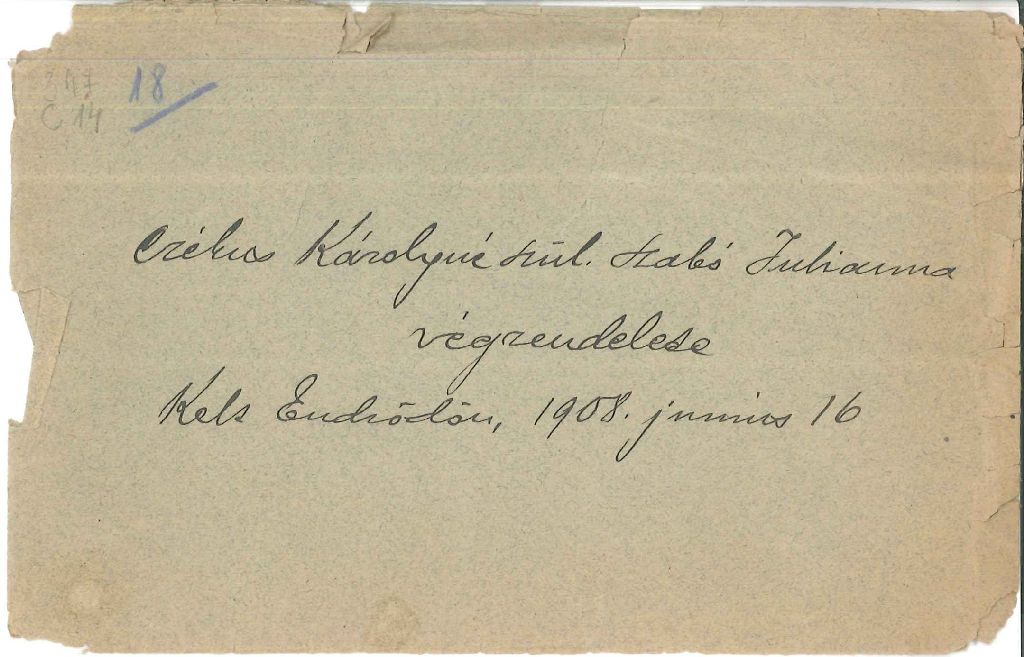 18
347
C 14
Czékus Károlyné szül. Szabó Julianna
végrendelete
Kelt Endrődön, 1908. junius 16